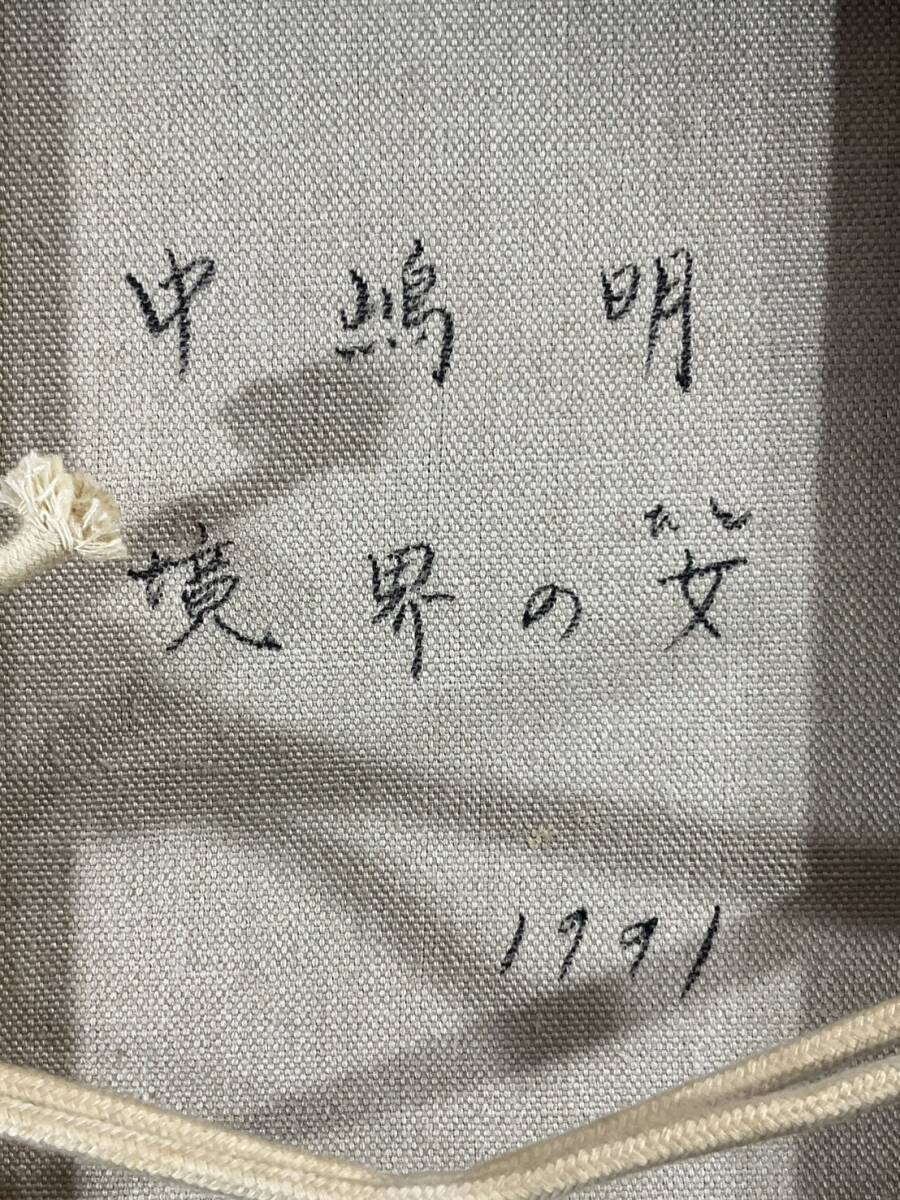 中嶋明
境界の女
1991